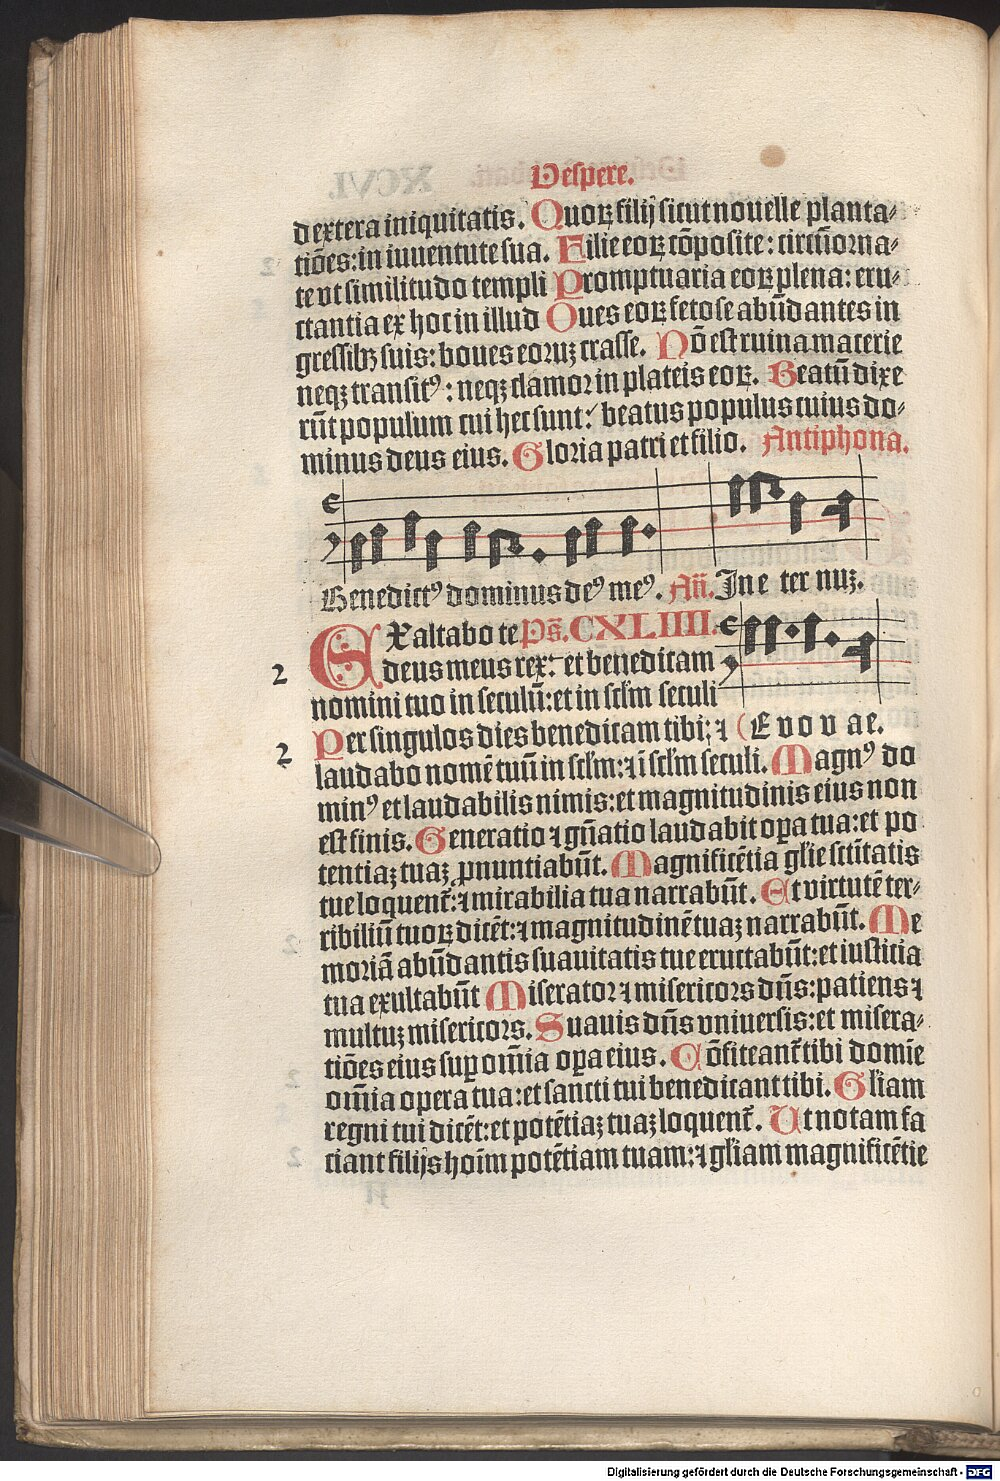 Vespere.
dextera iniquitatis. Quoꝝ filij sicut nouelle planta⸗
tiōes: in iuuentute sua. Filie eoꝝ cōposite: circūorna⸗
te vt similitudo templi Promptuaria eoꝝ plena: eru⸗
ctantia ex hoc in illud Oues eoꝝ fetose abūdantes in
gressibꝫ suis: boues eoruꝫ crasse. Nō est ruina macerie
neqꝫ transitꝰ: neqꝫ clamor in plateis eoꝝ. Beatū dixe
rūt populum cui hec sunt: beatus populus cuius do⸗
minus deus eius. Gloria patri et filio. Antiphona.
Benedictꝰ dominus deꝰ meꝰ. Añ. In e ter nuꝫ.
EXaltabo te Ps̄. CXLIIII.
2 deus meus rex: et benedicam
nomini tuo in seculū: et in scl̄m seculi
Per singulos dies benedicam tibi: ⁊ (E v o v a e.
2 laudabo nomē tuū in scl̄m: ⁊ ī scl̄m seculi. Magnꝰ do
minꝰ et laudabilis nimis: et magnitudinis eius non
est finis. Generatio ⁊ gn̄atio laudabit oꝑa tua: et po
tentiaꝫ tuaꝫ ꝓnuntiabūt. Magnificētia gl̄ie sctītatis
tue loquent᷑: ⁊ mirabilia tua narrabūt. Et virtutē ter⸗
ribiliū tuoꝝ dicēt: ⁊ magnitudinē tuaꝫ narrabūt. Me
moriā abūdantis suauitatis tue eructabūt: et iusticia
tua exultabūt Miserator ⁊ misericors dn̄s: patiens ⁊
multuꝫ misericors. Suauis dn̄s vniuersis: et misera⸗
tiōes eius suꝑ om̄ia oꝑa eius. Cōfiteant᷑ tibi domīe
om̄ia opera tua: et sancti tui benedicant tibi. Gl̄iam
regni tui dicēt: et potētiaꝫ tuaꝫ loquent᷑. Ut notam fa
ciant filijs hoīm potētiam tuam: ⁊ gl̄iam magnificētie
Digitalisierung gefördert durch die Deutsche Forschungsgemeinschaft - DFG